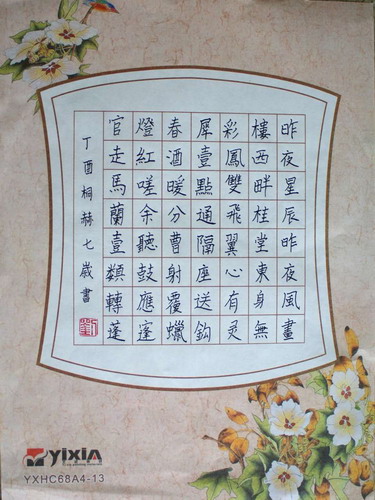 昨夜星辰昨夜風畫
樓西畔桂堂東身無
彩鳳雙飛翼心有灵
犀壹點通隔座送鈎
春酒暖分曹射覆蠟
燈紅嗟余聽鼓應
官走馬蘭壹類轉蓬
丁酉桐赫七歲書
劉
YIXIN
YXHC68A4-13